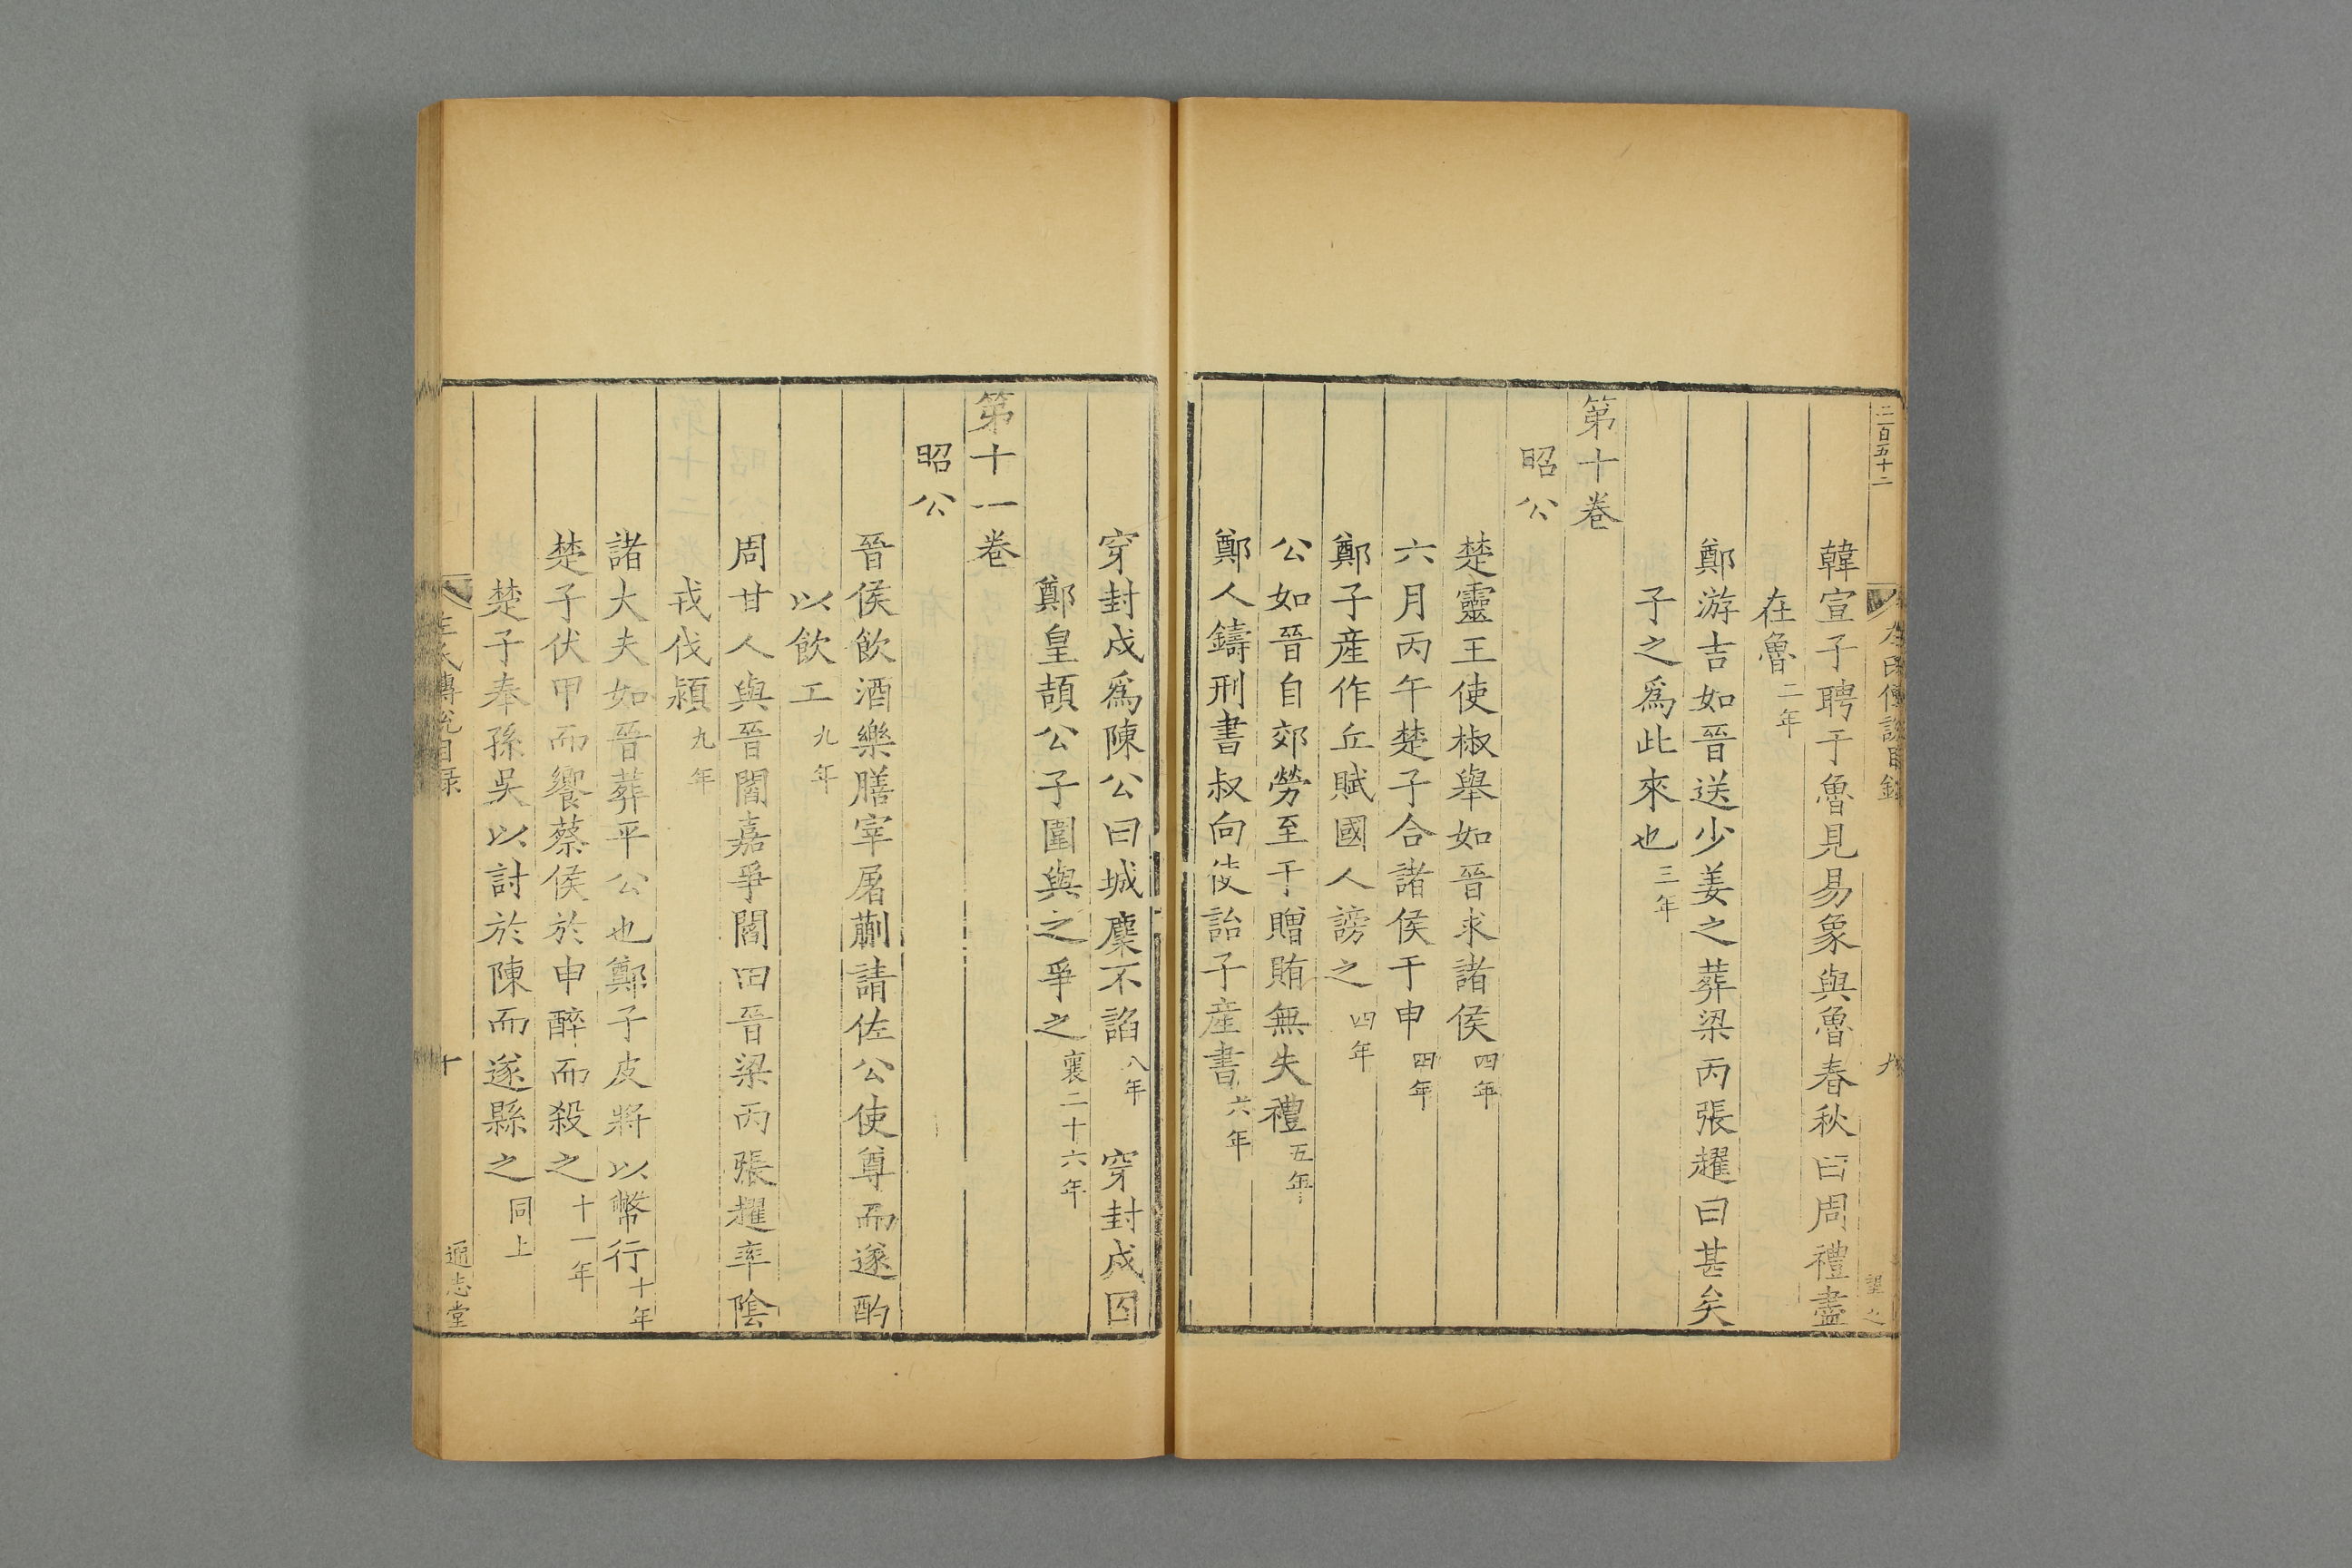 二百五十二
左氏傳說目錄
九
望之
韓宣子聘于魯見易象與魯春秋曰周禮盡
在魯二年
鄭游吉如晉送少姜之葬梁丙張趯曰甚矣
子之爲此來也三年
第十卷
昭公
楚靈王使椒舉如晉求諸侯四年
六月丙午楚子合諸侯于申四年
鄭子産作丘賦國人謗之四年
公如晉自郊勞至于贈賄無失禮五年
鄭人鑄刑書叔向使詒子産書六年
穿封戌爲陳公曰城麇不諂八年 穿封戌囚
鄭皇頡公子圍與之爭之襄二十六年
第十一卷
昭公
晉侯飲酒樂膳宰屠蒯請佐公使尊而遂酌
以飲工九年
周甘人與晉閻嘉爭閻田晉梁丙張趯率陰
戎伐潁九年
諸大夫如晉葬平公也鄭子皮將以幣行十年
楚子伏甲而饗蔡侯於申醉而殺之十一年
楚子奉孫吳以討於陳而遂縣之同上
左氏傳說目錄
十
通志堂